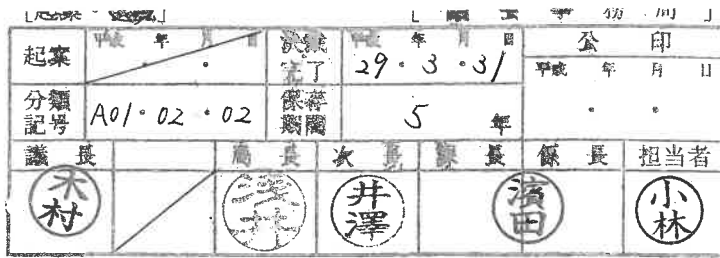 [起案・決裁] [議会事務局]
起案 平成 年 月 日 決裁完了 平成 年 月 日 29・3・31 公印
平成 年 月 日
分類記号 A01・02・02 保存期間 5 年
議長 局長 次長 課長 係長 担当者
木村 浅井 井澤 濱田 小林